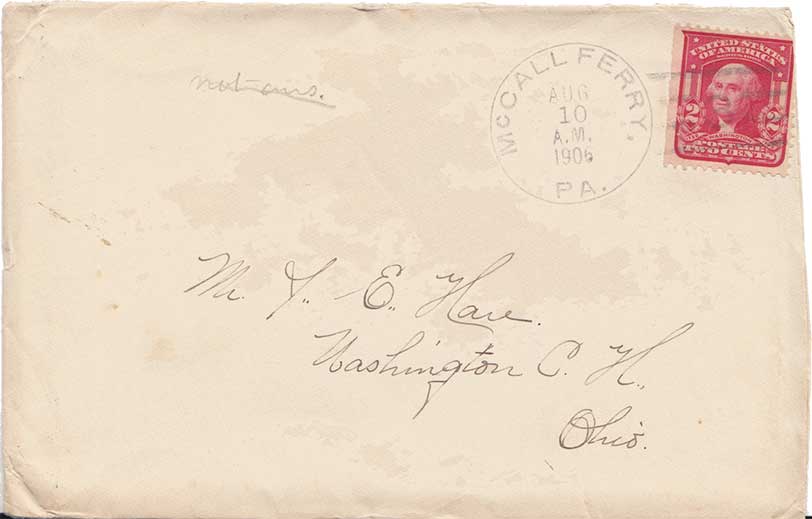 not ans.
McCALL FERRY,
AUG
10
A.M.
1906
PA.
UNITED STATES
OF AMERICA
2 2
WASHINGTON
POSTAGE
TWO CENTS
Mr. E. Hare.
Washington C. H.,
Ohio.